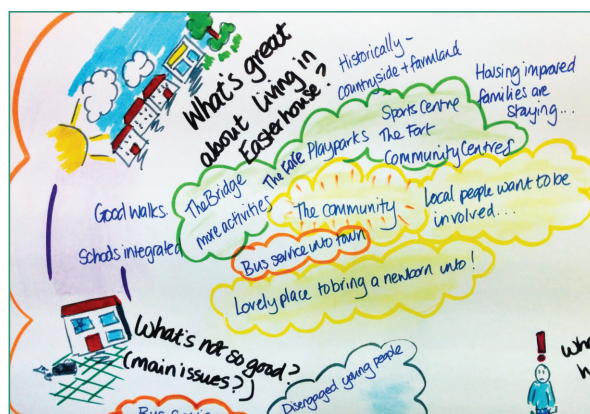 What's great
about living in
Easterhouse?
Historically –
countryside + farmland
Housing improved
families are
staying...
Sports Centre
The Fort
Community Centres
Playparks
The Cafe
The Bridge
more activities
Good walks.
Schools integrated
The Community
Local people want to be
involved...
Bus service into town
Lovely place to bring a newborn into!
What's not so good?
(main issues?)
Disengaged young people
Bus Service